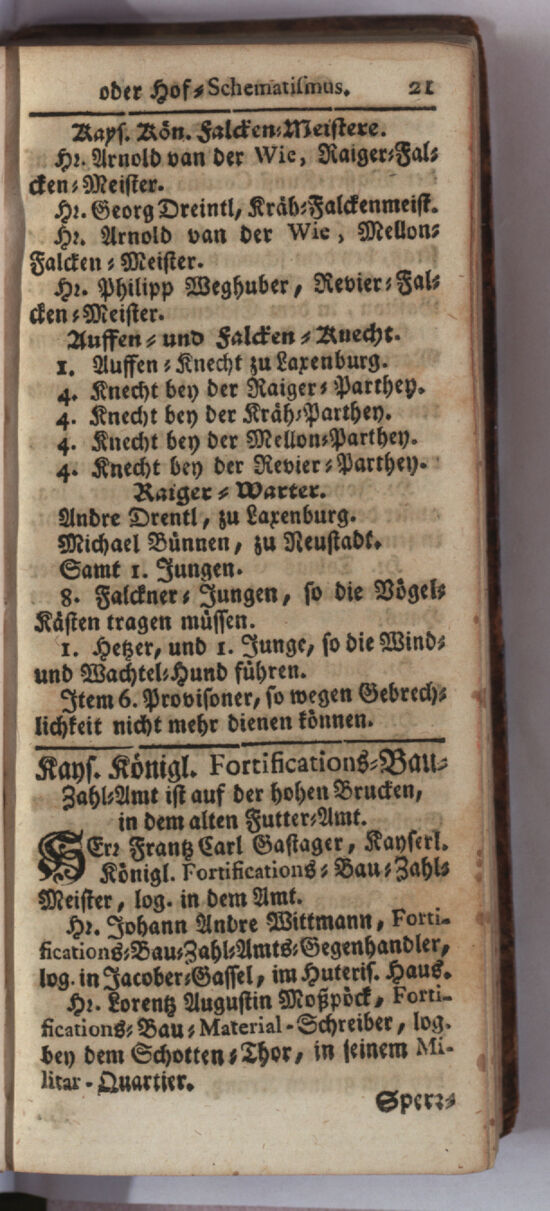 oder Hof-Schematiſmus. 21
Kayſ. Kön. Falcken-Meiſtere.
Hr. Arnold van der Wie, Raiger-Fal-
cken-Meiſter.
Hr. Georg Dreintl, Kräh-Falckenmeiſt.
Hr. Arnold van der Wie, Mellon-
Falcken-Meiſter.
Hr. Philipp Weghuber, Revier-Fal-
cken-Meiſter.
Auffen- und Falcken-Knecht.
1. Auffen-Knecht zu Laxenburg.
4. Knecht bey der Raiger-Parthey.
4. Knecht bey der Kräh-Parthey.
4. Knecht bey der Mellon-Parthey.
4. Knecht bey der Revier-Parthey.
Raiger-Warter.
Andre Drentl, zu Laxenburg.
Michael Bünnen, zu Neuſtadt.
Samt 1. Jungen.
8. Falckner-Jungen, ſo die Vögel-
Käſten tragen müſſen.
1. Hetzer, und 1. Junge, ſo die Wind-
und Wachtel-Hund führen.
Item 6. Proviſoner, ſo wegen Gebrech-
lichkeit nicht mehr dienen können.
Kayſ. Königl. Fortifications-Bau-
Zahl-Amt iſt auf der hohen Brucken,
in dem alten Futter-Amt.
HErr Frantz Carl Gaſtager, Kayſerl.
Königl. Fortifications-Bau-Zahl-
Meiſter, log. in dem Amt.
Hr. Johann Andre Wittmann, Forti-
fications-Bau-Zahl-Amts-Gegenhandler,
log. in Jacober-Gaſſel, im Huteriſ. Haus.
Hr. Lorentz Auguſtin Moßpöck, Forti-
fications-Bau-Material-Schreiber, log.
bey dem Schotten-Thor, in ſeinem Mi-
litar-Quartier.
Sperr-